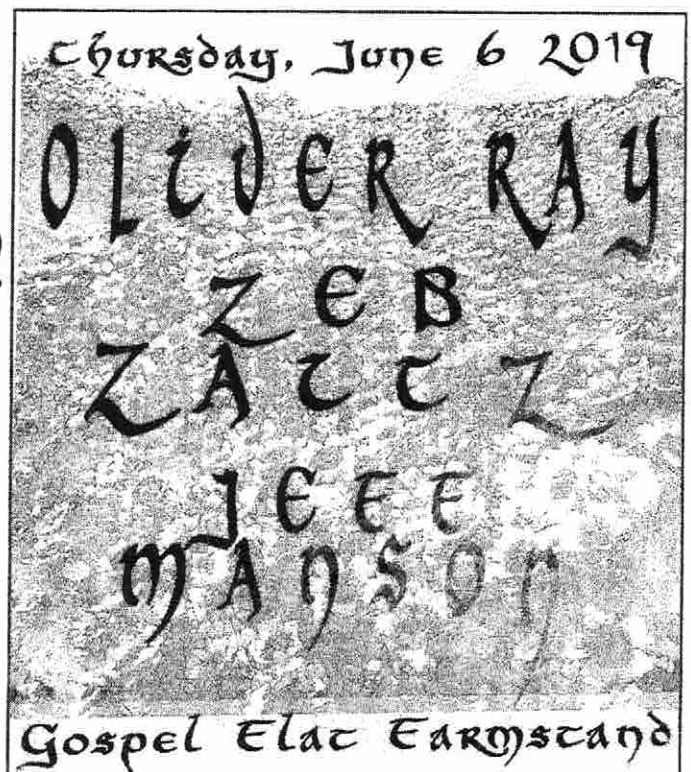 Thursday, June 6 2019
OLIVER RAY
ZEB
ZATTZ
JEFF
MANSON
Gospel Flat Farmstand